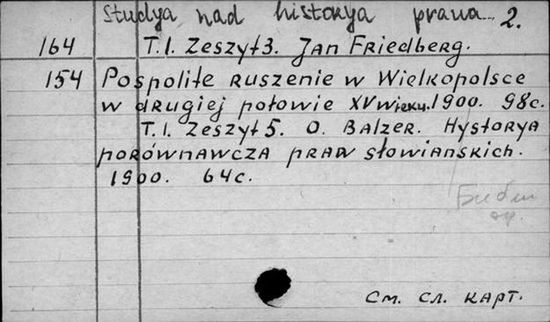 Studya nad historya prawa 2.
164 T. I. Zeszyt 3. Jan Friedberg.
154 Pospolite ruszenie w Wielkopolsce
w drugiej połowie XV wieku. 1900. 98c.
T. I. Zeszyt 5. O. Balzer. Hystorya
porównawcza praw słowianskich.
1900. 64c.
См. сл. карт.